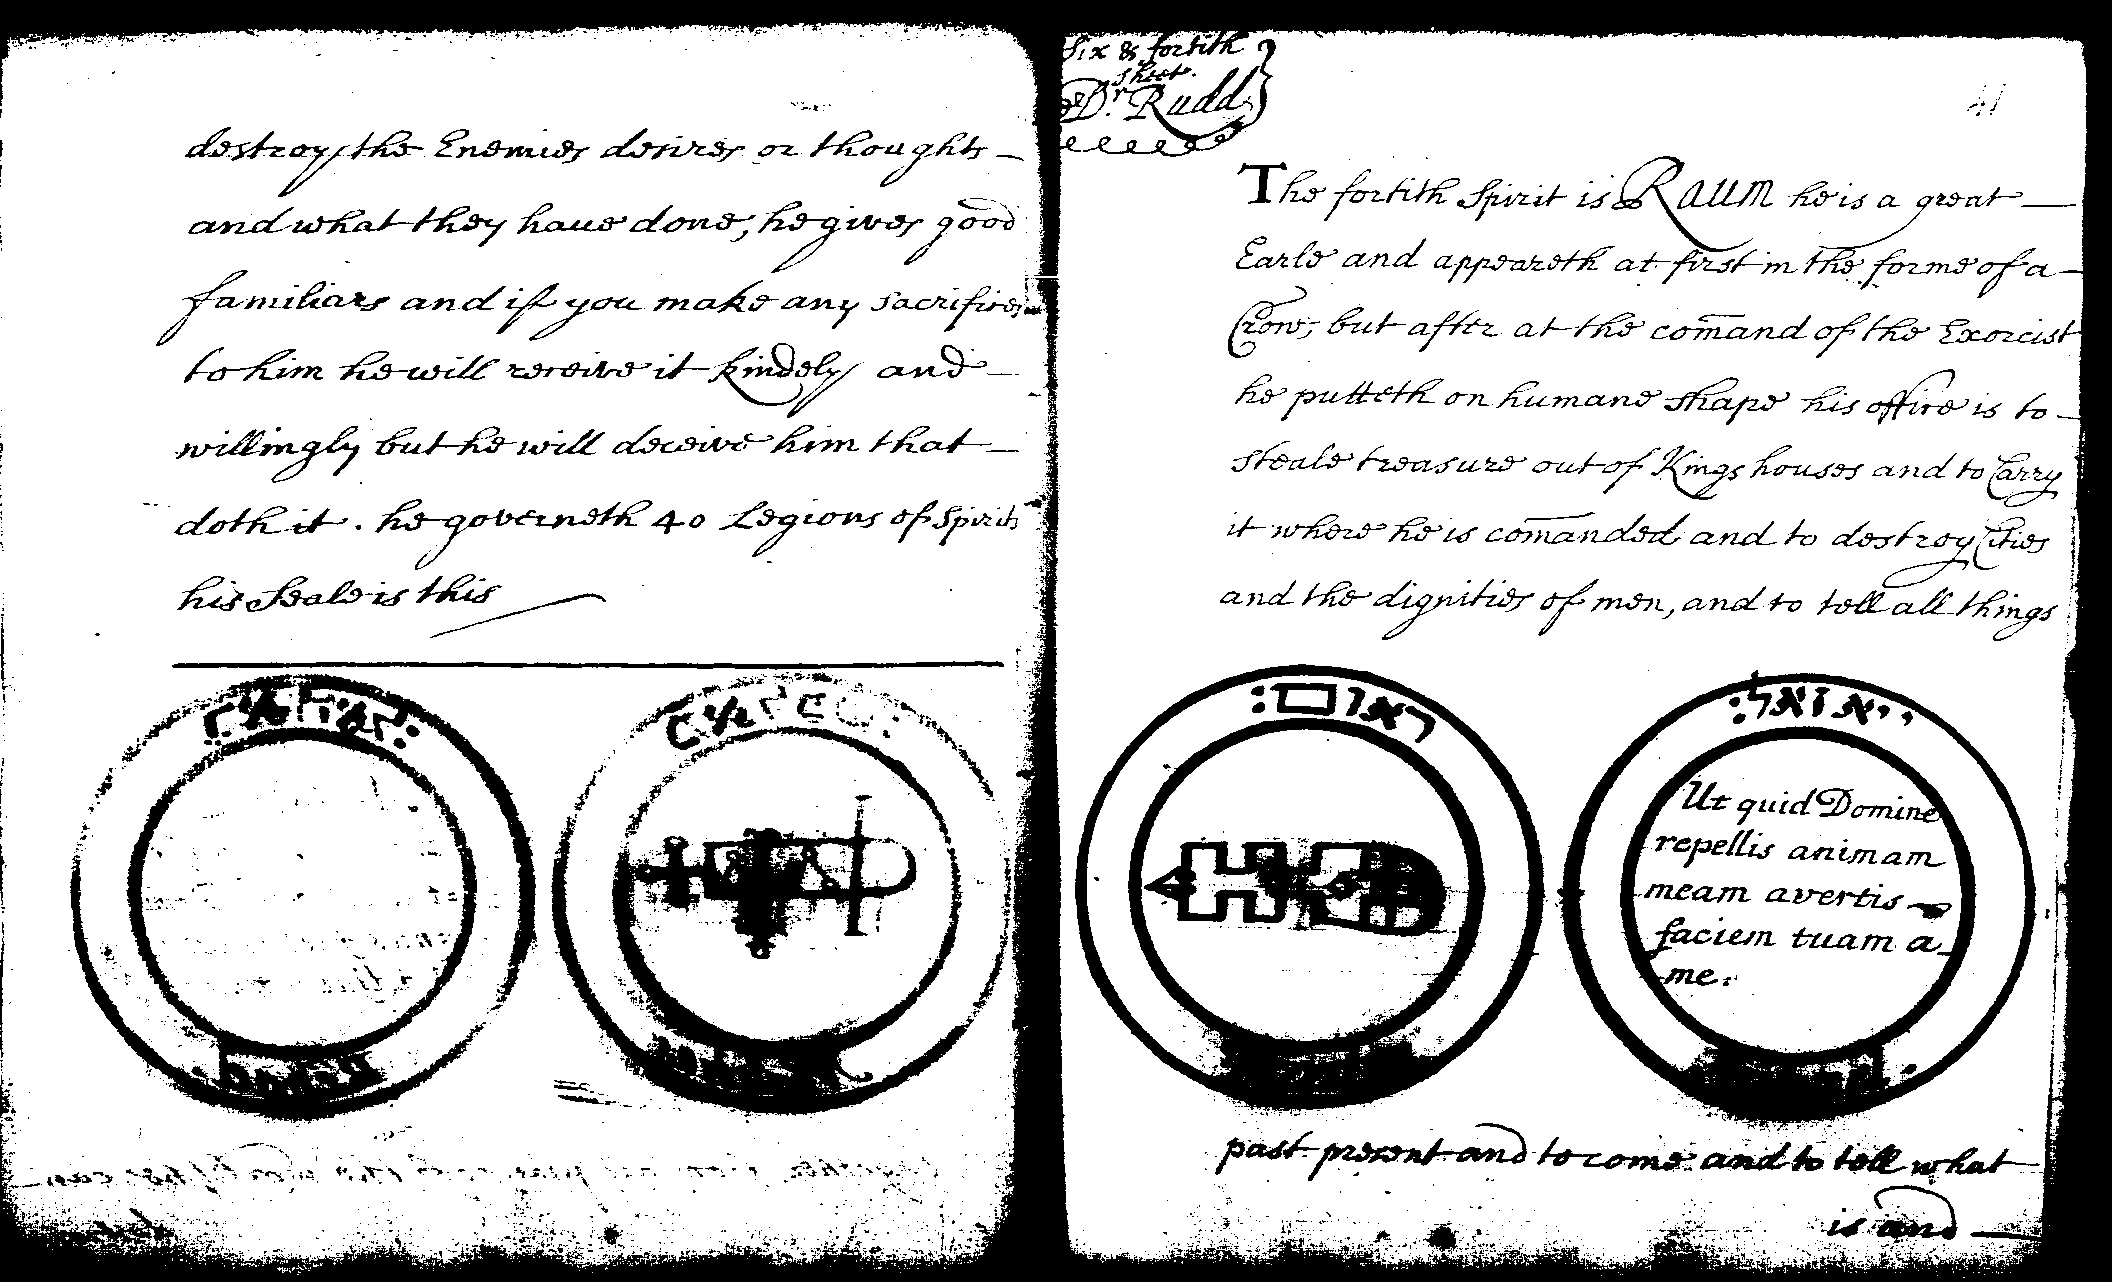 destroy the Enemies desires or thoughts
and what they haue done, he gives good
familiars and if you make any sacrifices
to him he will receive it kindely and
willingly but he will deceive him that
doth it. he governeth 40 Legions of Spirits
his Seale is this
Six & fortith
sheet.
Dr. Rudd
41
The fortith Spirit is RAUM he is a great
Earle and appeareth at first in the forme of a
Crow, but after at the comand of the Exorcist
he putteth on humane shape his office is to
steale treasure out of Kings houses and to Carry
it where he is comanded and to destroy Cities
and the dignities of men, and to tell all things
ראום:
ייאזאל:
Ut quid Domine
repellis animam
meam avertis
faciem tuam a
me.
past present and to come and to tell what
is and